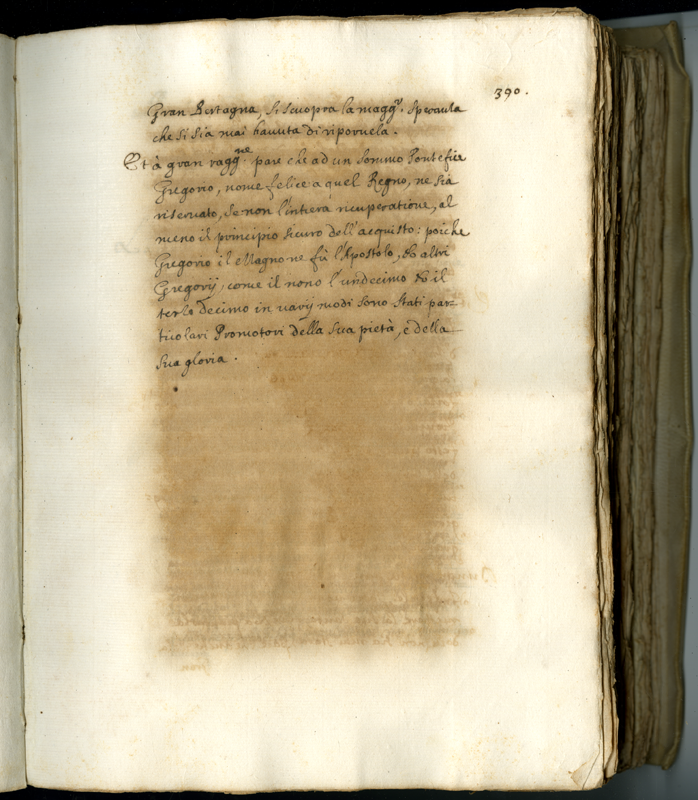 390.
Gran Bertagna, si scuopra la magg.r speranza
che si sia mai havuta di rihaverla.
Et à gran ragg.ne pare che ad un sommo Pontefice
Gregorio, nome felice a quel Regno, ne sia
riservato, se non l'intiera ricuperatione, al
meno il principio sicuro dell'acquisto: poiche
Gregorio il Magno ne fù l'Apostolo, & altri
Gregorij, come il nono l'undecimo & il
terzo decimo in varij modi sono stati par=
ticolari Promotori della sua pietà, e della
sua gloria.